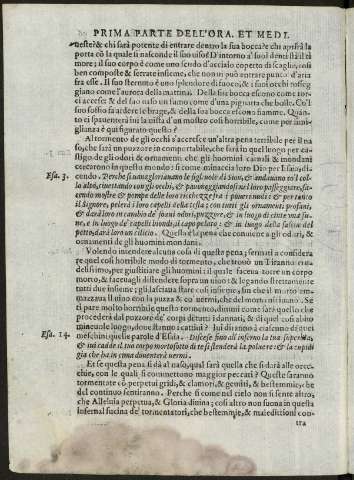 80 PRIMA PARTE DELL'ORA. ET MEDI.
ueste? & chi sarà potente di entrare dentro la sua bocca? e chi aprirà la
porta cō la quale si nasconde il suo uiso? D'intorno a' suoi denti stà il ti
more; il suo corpo è come uno scudo d'acciaio coperto di scaglie, così
ben composte & serrate insieme, che non ui può entrare punto d'aria
fra esse. Il suo sternuto è uno splendore di fuoco, & i suoi occhi rosseg
giano come l'aurora della mattina. Della sua bocca escono come tor
ci accese; & del suo naso un fumo come d'una pignatta che bolle. Co'l
suo soffio fà ardere le brage, & della sua bocca escono fiamme. Quan-
to ci spauenterà mò la uista d'un mostro così horribile, come per simi-
glianza è qui figurato questo?
Al tormento de gli occhi s'accresce un'altra pena terribile per il na
so, che sarà un puzzore incomportabile, che sarà in quel luogo per ca-
stigo de gli odori & ornamenti che gli huomini carnali & mondani
cercorono in questo mondo: sì come minaccia loro Dio per Isaia, di-
Esa. 3. cendo. Perche si insuperbirono le figliuole di Sion, & andauano co'l col
lo alto, ciuettando con gli occhi, & pauoneggiandosi nel loro passeggiare, fa-
cendo mostre & pompe delle loro ricchezze fra i poueri nudi; & per tanto
il Signore, pelerà i loro capelli della testa; con tutti gli ornamenti profani,
& darà loro in cambio de' soaui odori, puzzore, & in luogo di cinte una fu-
ne, e in luogo de' capelli biondi, il capo pelato: & in luogo della fascia del
petto, darà loro un cilicio. Questa è la pena che conuiene a gli odori, &
ornamenti de gli huomini mondani.
Volendo intendere alcuna cosa di questa pena; fermati a considera
re quel così horribile modo di tormento, che trouò un Tiranno cru-
delissimo, per giustitiare gli huomini: il quale faceua torre un corpo
morto, & faceuagli distendere sopra un uiuo; & legando strettamente
tutti due insieme; gli lasciaua stare così insieme, fin che il morto am-
mazzaua il uiuo con la puzza & co' uermi, che del morto usciuano. Se
ti pare molto horribile questo tormento, dimmi come sarà quello che
procederà dal puzzore de' corpi di tutti i dannati, & di quel così abbo
mineuole luogo, doue stanno i cattiui? Iui diranno à ciascuno de quei
Esa. 14. meschini quelle parole d'Esaia. Discese fino all'inferno la tua superbia,
& iui cadde il tuo corpo morto: sotto di te si stenderà la poluere: & la copidi
gia che hai in seno diuenterà uermi.
Et se questa pena si dà al naso, qual sarà quella che si darà alle orec
chie, con le quali si commettono maggior peccati? Queste saranno
tormentate cō perpetui gridi, & clamori, & gemiti, & bestemmie, che
del continuo sentiranno. Perche sì come nel cielo non si sente altro,
che Alleluia perpetua, & Gloria diuina; così altro non suona in questa
infernal fucina de' tormentatori, che bestemmie, & maledittioni con-
tra